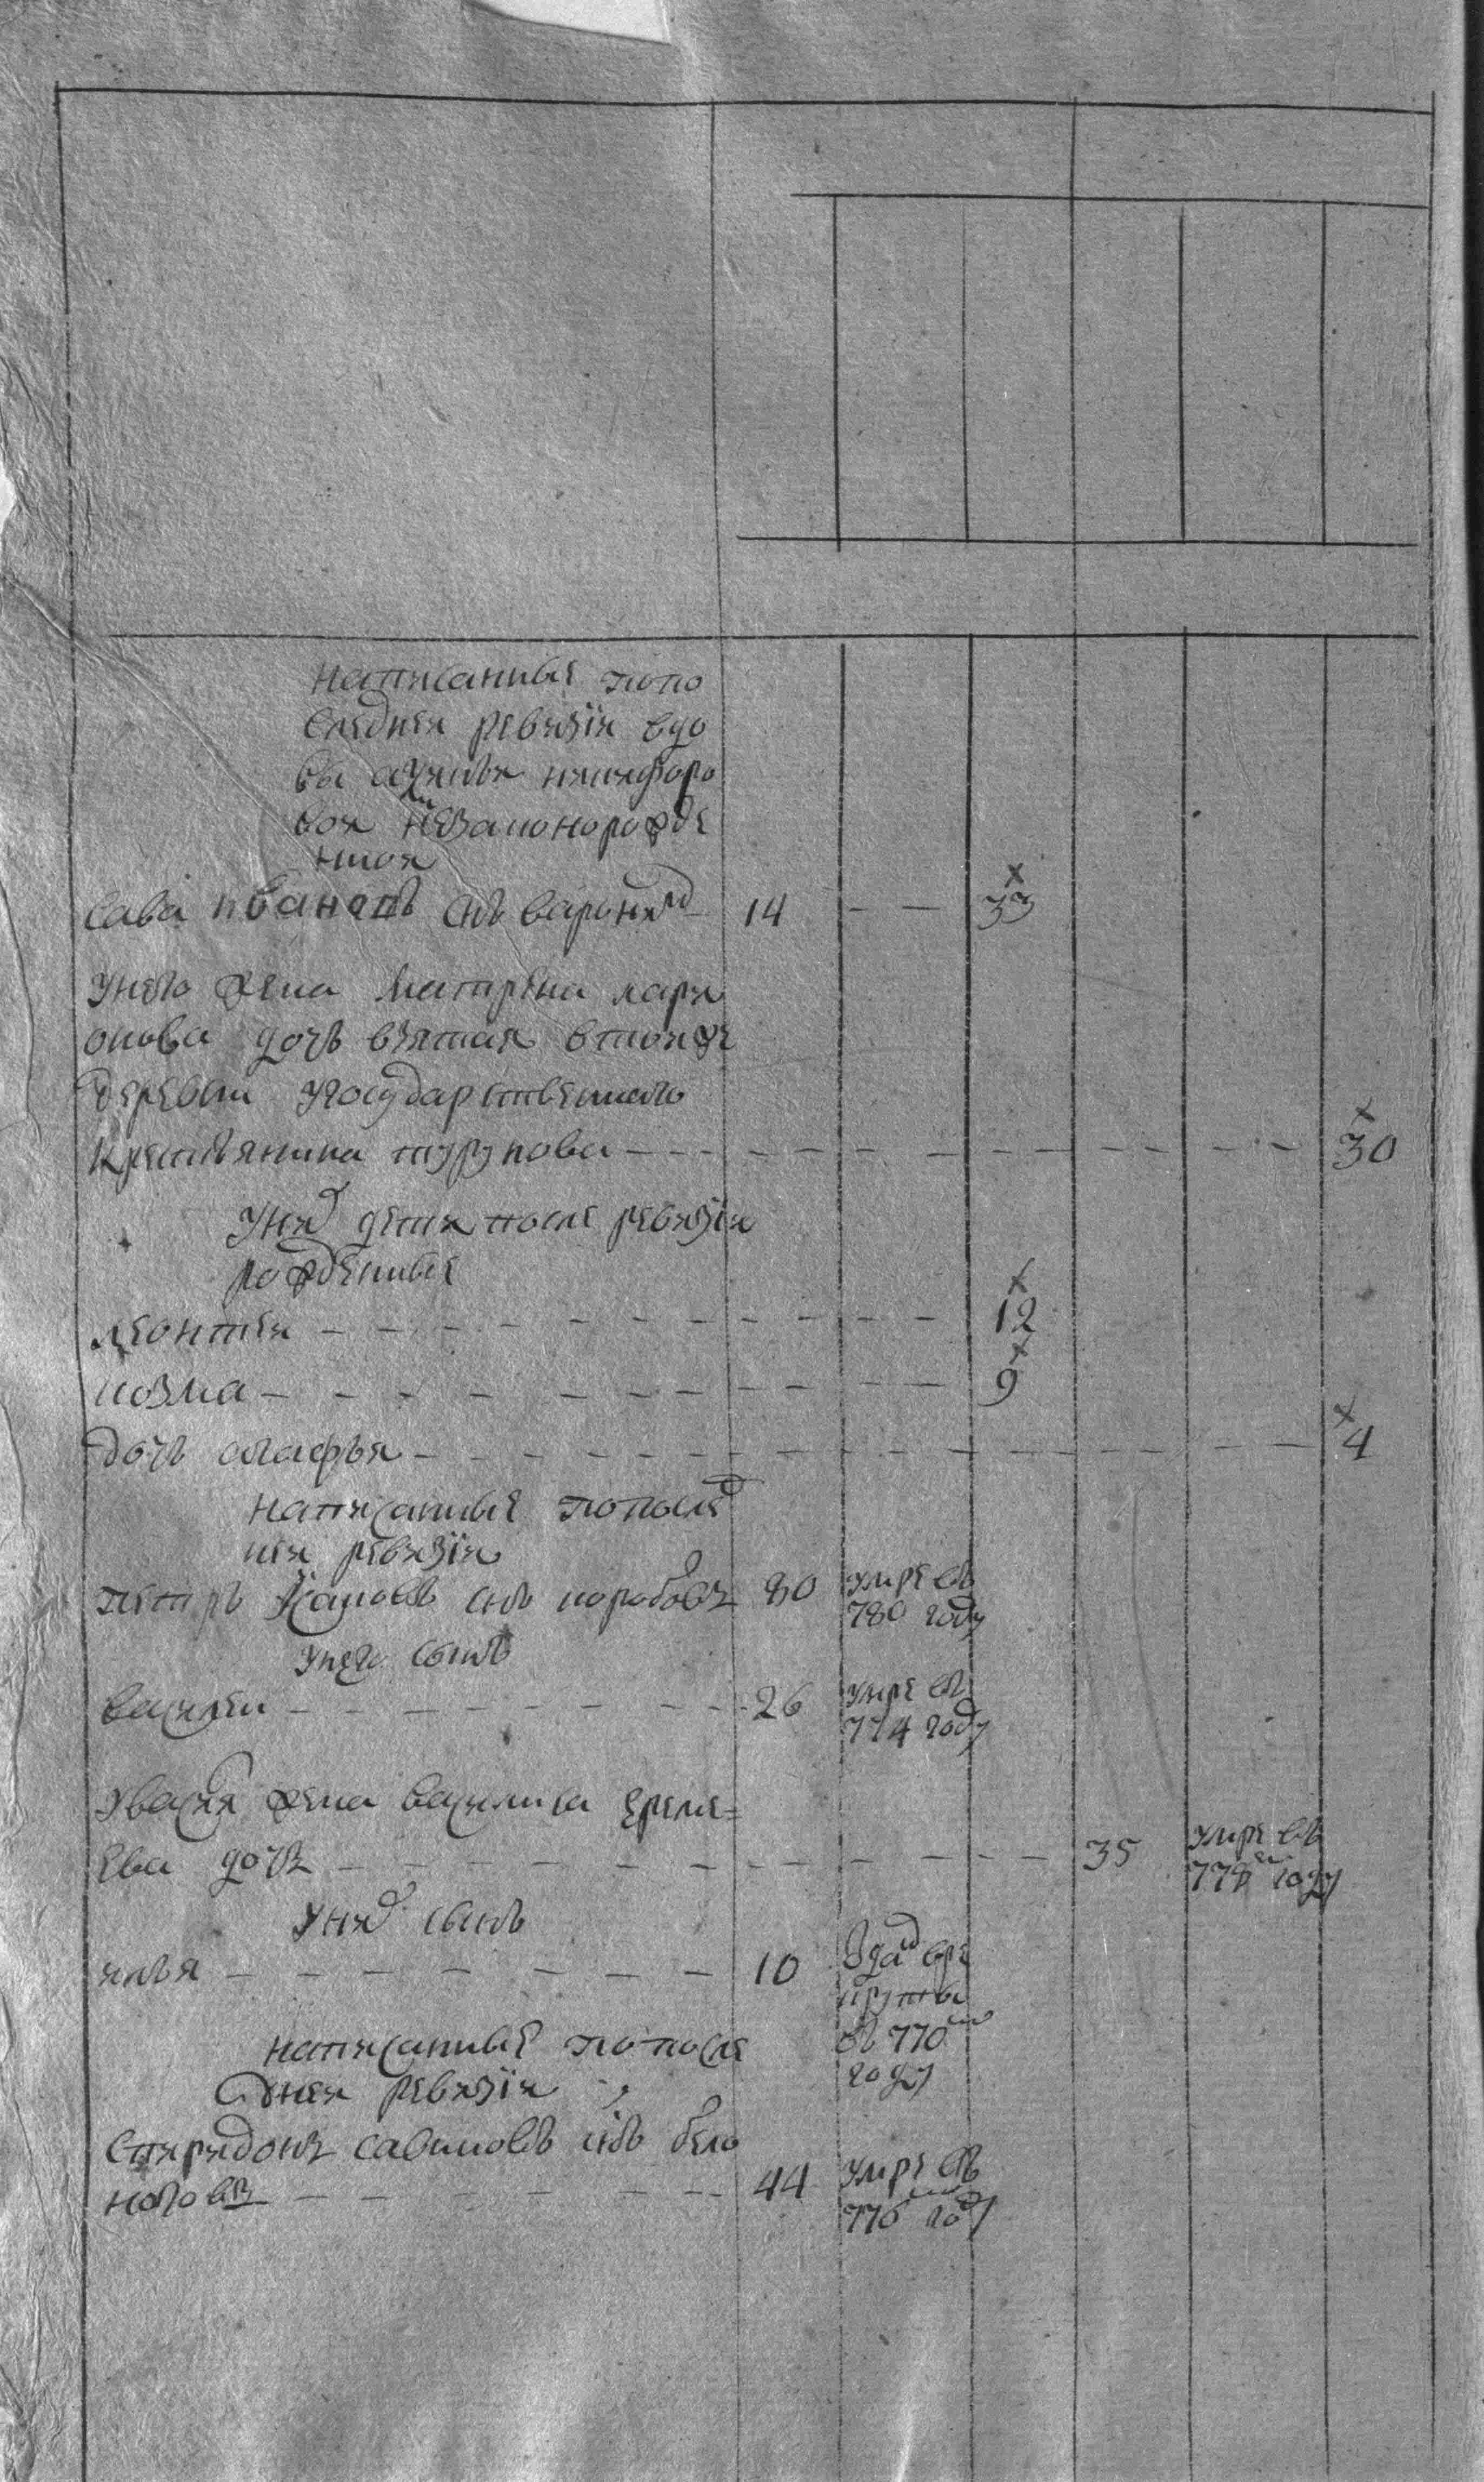 написанныя попо
следнеи ревизiи вдо
вы никифоро
вои незаконорожде
нной
Сава Ивановъ снъ 14 - - 33
У него жена матрена лари
онова дочь взятая в тои же
деревни у государственнаго
крестьянина турунова - - - 30
У них дети после ревизiи
рожденныя
леонтеи - - - 12
козма - - - 9
дочь агафья - - - 4
написанныя по послед
неи ревизiи
петръ снъ коробовъ 80 умре въ
780 году
У него сынъ
василеи - - - 26 умре въ
774 году
У василия жена василиса ереме=
ева дочь - - - 35 умре въ
778м году
У них сынъ
илья - - - 10 Отдан в ре
круты
въ 770м
году
написанныя по после
днеи ревизiи
Спиридонъ савиновъ снъ бело
ноговъ - - - 44 умре въ
776м году